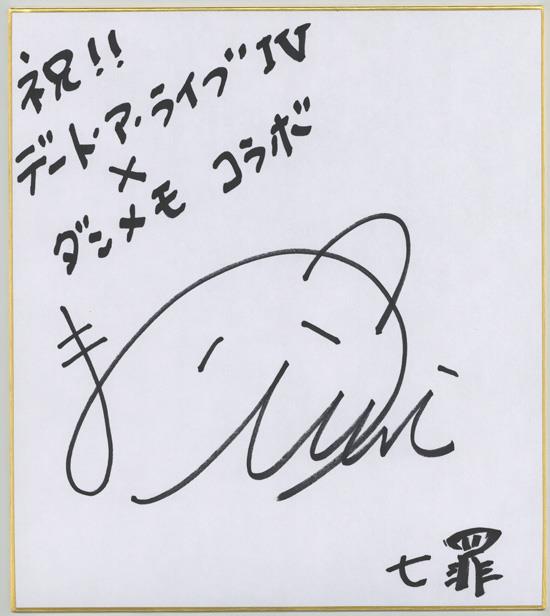 祝!!
デート・ア・ライブIV
×
ダンメモ コラボ
七罪